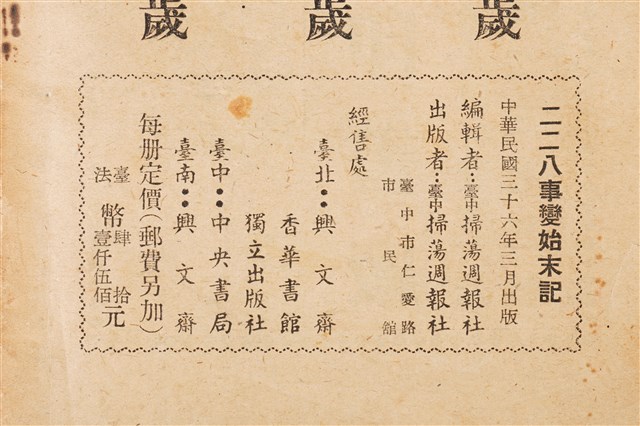 歲
歲
歲
二二八事變始末記
中華民國三十六年三月出版
編輯者：臺中掃蕩週報社
出版者：臺中掃蕩週報社
臺中市仁愛路
市民館
經售處
臺北：興文齋
香華書館
獨立出版社
臺中：中央書局
臺南：興文齋
每册定價（郵費另加）
臺法幣肆拾壹仟伍佰元